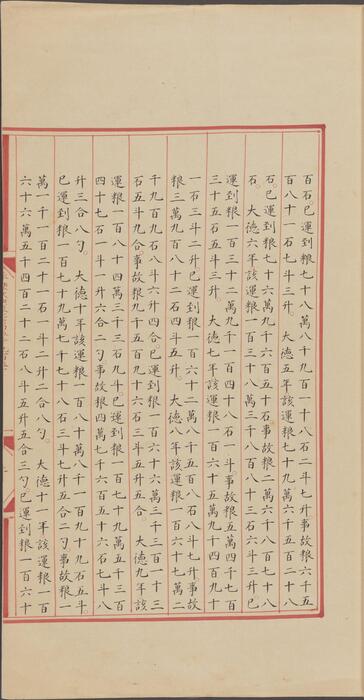 百石已運到粮七十八萬八千九百一十八石二斗七升事故粮六千五
百八十一石七斗三升。　大德五年該運粮七十九萬六千五百二十八
石。已運到粮七十六萬九千六百五十石事故粮二萬六千八百七十八
石。　大德六年該運粮一百三十八萬三千八百八十三石六斗三升已
運到粮一百三十二萬九千一百四十八石一斗事故粮五萬四千七百
三十五石五斗三升。　大德七年該運粮一百六十五萬九千四百九十
一石三斗二升已運到粮一百六十二萬八千五百八石八斗七升事故
粮三萬九百八十二石四斗五升。　大德八年該運粮一百六十七萬二
千九百九石八斗六升四合已運到粮一百六十六萬三千三百一十三
石五斗九合事故粮九千五百九十六石三斗五升五合。　大德九年該
運粮一百八十四萬三千三石九斗已運到粮一百七十九萬五千三百
四十七石一斗一升六合二勺事故粮四萬七千六百五十六石七斗八
升三合八勺。　大德十年該運粮一百八十萬八千一百九十九石五斗。
已運到粮一百七十九萬七千七十八石三斗七升五合二勺事故粮一
萬一千一百二十一石一斗二升二合八勺。　大德十一年該運粮一百
六十六萬五千四百二十二石八斗五升五合三勺已運到粮一百六十